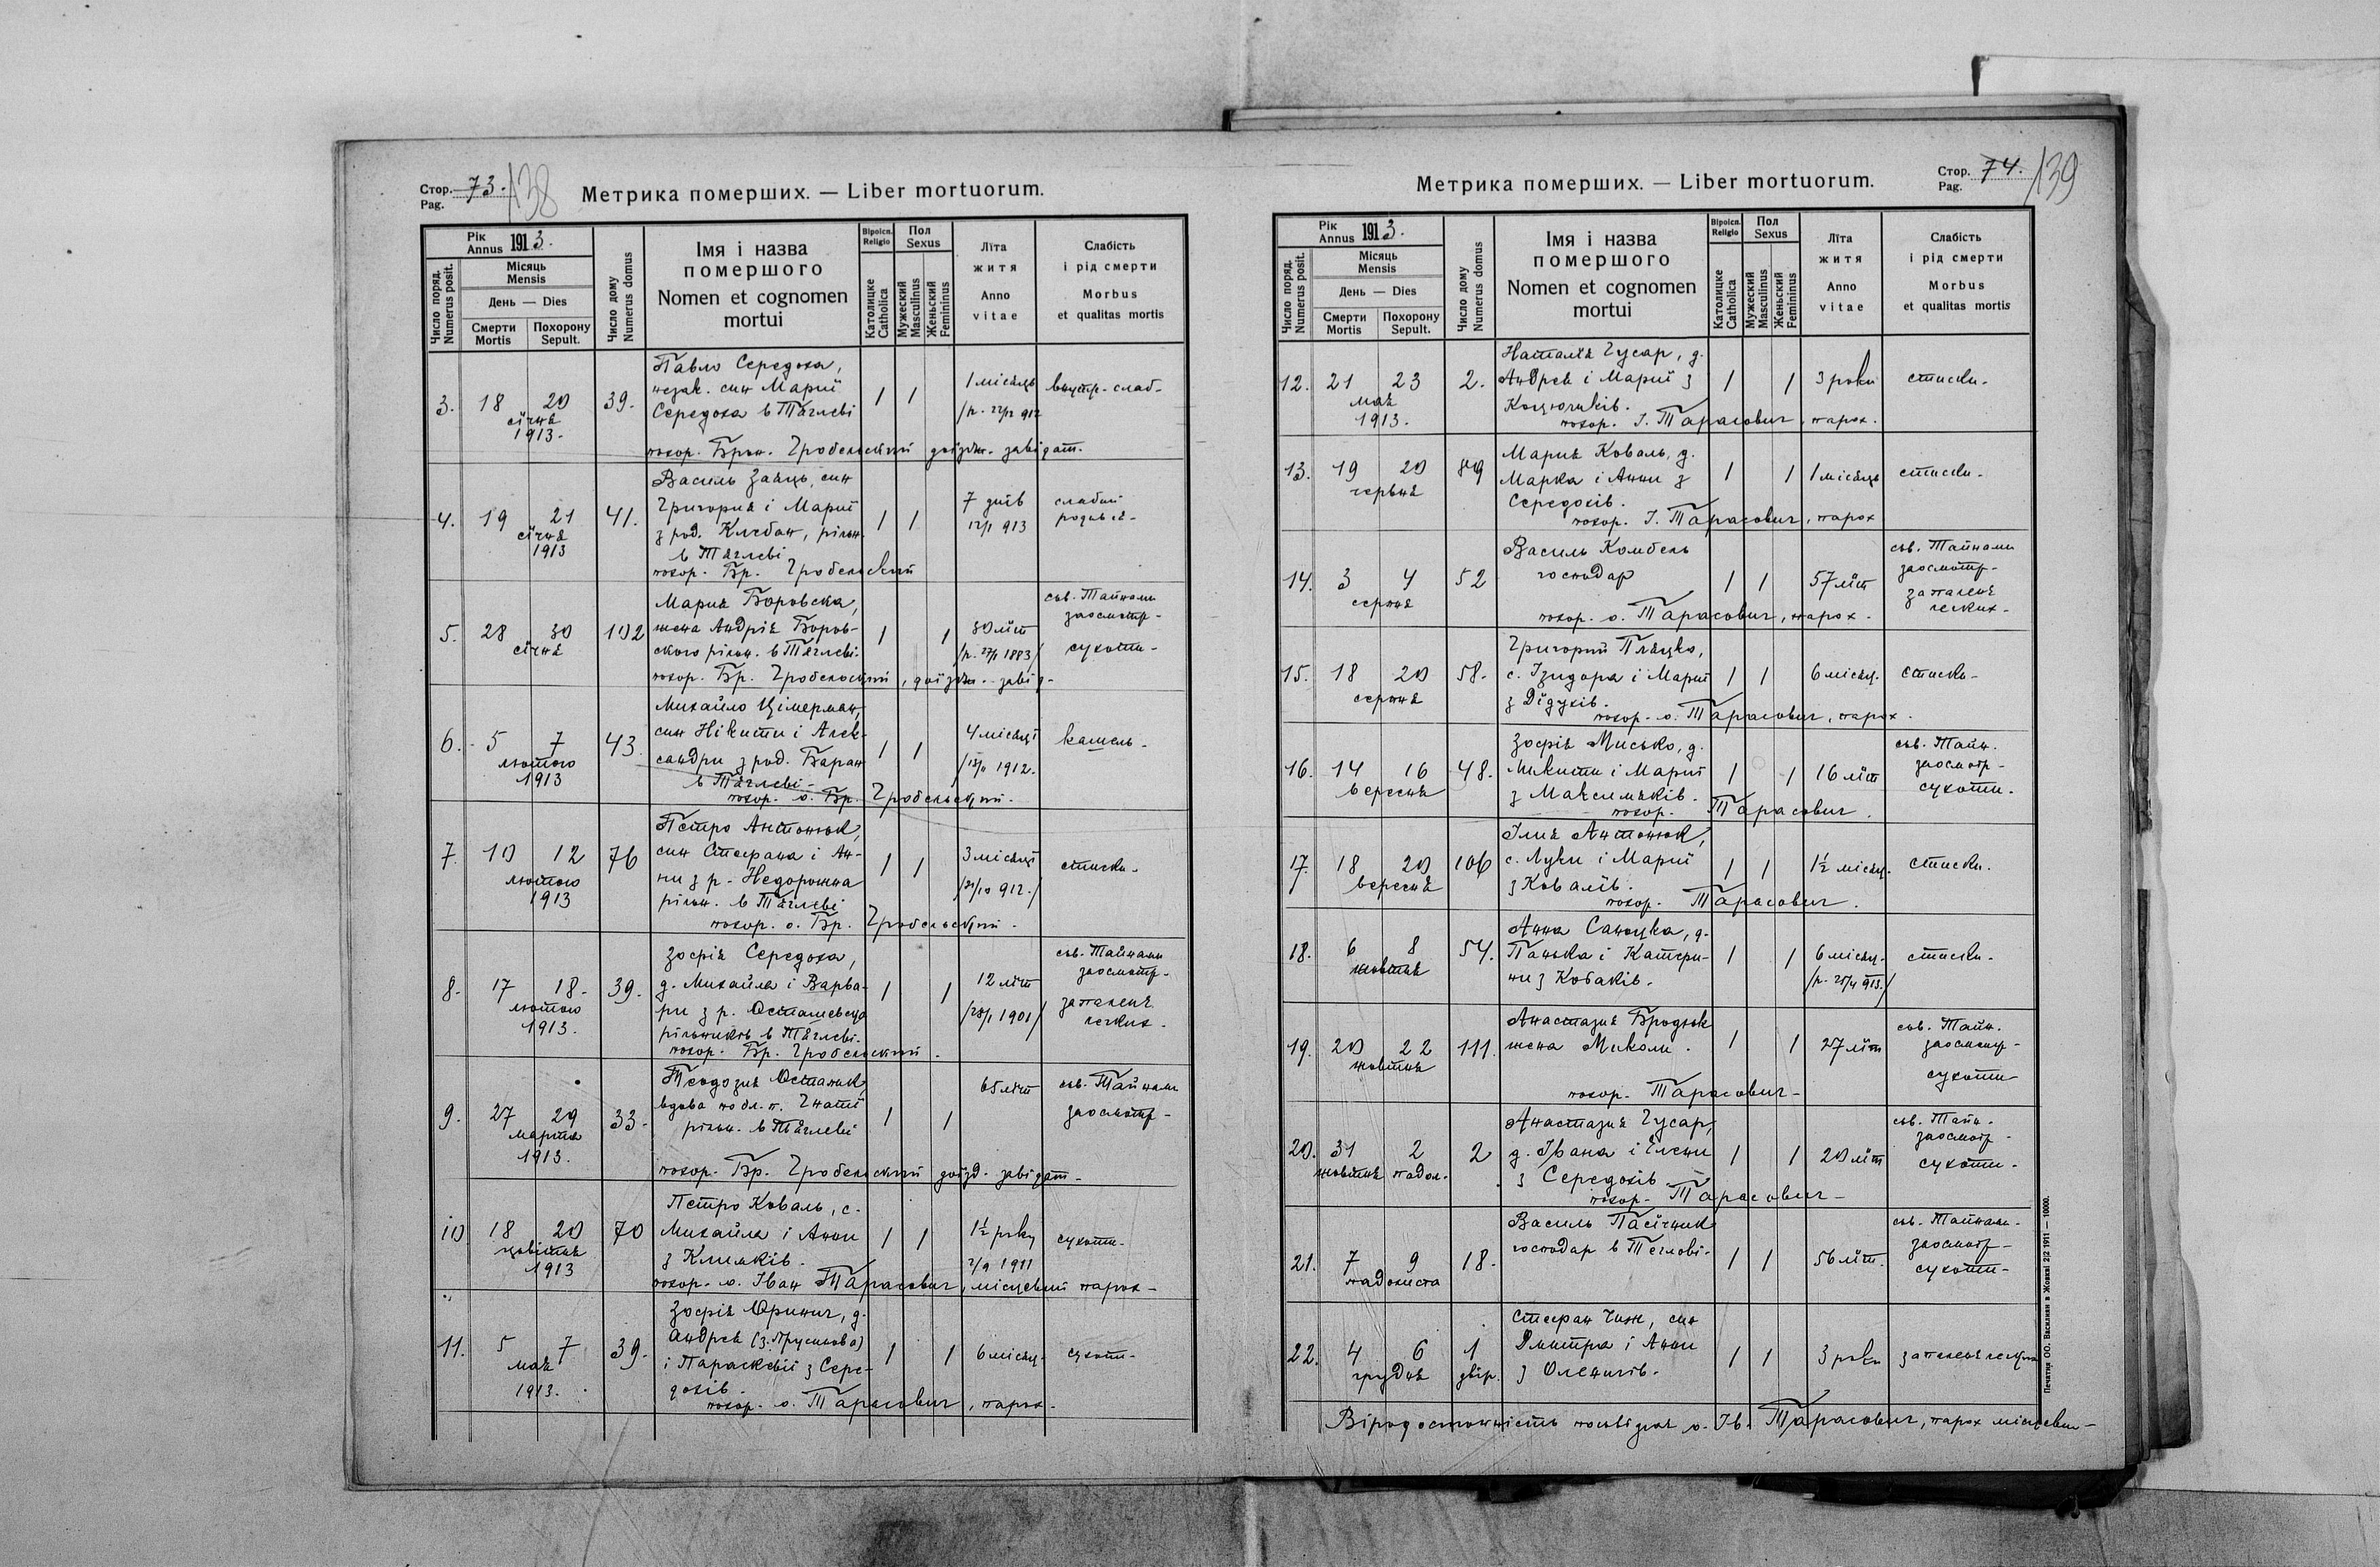 Стор. 73. 138
Pag.
Метрика померших. — Liber mortuorum.
Число поряд. Numerus posit.
Рік Annus 1913.
Місяць Mensis
День — Dies
Смерти Mortis
Похорону Sepult.
Число дому Numerus domus
Імя і назва помершого
Nomen et cognomen mortui
Віроісп. Religio
Католицке Catholica
Пол Sexus
Мужеский Masculinus
Женьский Femininus
Лїта житя
Anno vitae
Слабість і рід смерти
Morbus et qualitas mortis
3. 18 20 січня 1913. 39.
Павло Середоха,
незак. син Марії
Середоха в Тяглеві
1 1 1 місяць
внутр. слаб.
похор. Брон. Гробельский доїзж. завідат.
4. 19 21 січня 1913 41.
Василь Заяць, син
Григория і Марії
з род. Клебан, рільн.
в Тяглеві
1 1 7 днїв
12/1 913
слабий
похор. Бр. Гробельский
5. 28 30 січня 102
Мария Боровска,
жена Андрія Боров-
ского рільн. в Тяглеві.
1 1 30 лїт
/р. 27/1 1883/
сьв. Тайнами
заосмотр.
сухоти.
похор. Бр. Гробельский, доїзж. завід.
6. 5 7 лютого 1913 43.
Михайло Цімерман,
син Нікити і Алек-
сандри з род. Баран
в Тяглеві.
1 1 4 місяцї
1912.
кашель.
похор. о. Бр. Гробельский.
7. 10 12 лютого 1913 76
Петро Антонюк,
син Стефана і Ан-
ни з р. Недорожна
рільн. в Тяглеві
1 1 3 місяцї
/29/10 912./
списки.
похор. о. Бр. Гробельский.
8. 17 18. лютого 1913. 39.
Зофія Середоха,
д. Михайла і Варва-
ри з р. Осташевець
рільників в Тяглеві.
1 1 12 лїт
1901/
сьв. Тайнами
заосмотр.
запаленя
легких.
похор. Бр. Гробельский.
9. 27 29 марта 1913. 33.
Теодозия Остапюк
вдова по бл. п. Гнатї
рільн. в Тяглеві
1 1 65 лїт
сьв. Тайнами
заосмотр.
похор. Бр. Гробельский доїзд. завідат.
10 18 20 цьвітня 1913 70
Петро Коваль, с.
Михайла і Анни
з Климків.
1 1 1½ року
2/9 1911
сухоти.
похор. о. Іван Тарасович, місцевий парох.
11. 5 7 мая 1913. 39.
Зофія Юринич, д.
Андрея (з Прусинова)
і Параскевії з Сере-
дохів.
1 1 6 місяц.
сухоти.
похор. о. Тарасович, парох.
Метрика померших. — Liber mortuorum.
Стор. 74. 139
Pag.
Число поряд. Numerus posit.
Рік Annus 1913.
Місяць Mensis
День — Dies
Смерти Mortis
Похорону Sepult.
Число дому Numerus domus
Імя і назва помершого
Nomen et cognomen mortui
Віроісп. Religio
Католицке Catholica
Пол Sexus
Мужеский Masculinus
Женьский Femininus
Лїта житя
Anno vitae
Слабість і рід смерти
Morbus et qualitas mortis
12. 21 23 мая 1913. 2.
Наталїя Гусар, д.
Андрея і Марії з
Коцюликів.
1 1 3 роки
списки.
похор. І. Тарасович, парох.
13. 19 20 червня 89
Мария Коваль, д.
Марка і Анни з
Середохів.
1 1 1 місяць
списки.
похор. І. Тарасович, парох
14. 3 4 серпня 52
Василь Комбель
господар
1 1 57 лїт
сьв. Тайнами
заосмотр.
запаленя
легких.
похор. о. Тарасович, парох.
15. 18 20 серпня 58.
Григорий Пляцко,
с. Ізидора і Марії
з Дїдухів.
1 1 6 місяц.
списки.
похор. о. Тарасович, парох.
16. 14 16 вересня 48.
Зофія Мисько, д.
Микити і Марії
з Максимяків.
1 1 16 лїт
сьв. Тайн.
заосмотр.
сухоти.
похор. Тарасович.
17. 18 20 вересня 106
Ілия Антонюк,
с. Луки і Марії
з Ковалїв.
1 1 1½ місяц.
списки.
похор. Тарасович.
18. 6 8 жовтня 54.
Анна Саноцка, д.
Панька і Катери-
ни з Кобаків.
1 1 6 місяц.
/р. 25/4 913./
списки.
19. 20 22 жовтня 111.
Анастазия Бродюк
жена Миколи.
1 1 27 лїт
сьв. Тайн.
заосмотр.
сухоти
похор. Тарасович.
20. 31 2 жовтня падол. 2
Анастазия Гусар,
д. Івана і Елени
з Середохів
1 1 20 лїт
сьв. Тайн.
заосмотр.
сухоти.
похор. Тарасович
21. 7 9 падолиста 18.
Василь Пасїчник
господар в Тяглові.
1 1 56 лїт.
сьв. Тайнами.
заосмотр.
сухоти.
22. 4 6 грудня 1 двір.
Стефан Чиж, син
Дмитра і Анни
з Оленичів.
1 1 3 роки
запаленя легких
Віродостойність посьвідчає о. Ів. Тарасович, парох місцевий
Печатня ОО. Василиян в Жовкві 2|2 1911 — 10000.